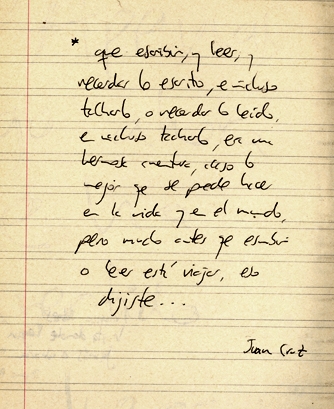 * que escribir, y leer, y
recordar lo escrito, e incluso
tacharlo, o recordar lo leído,
e incluso tacharlo, era una
hermosa aventura, acaso lo
mejor que se puede hacer
en la vida y en el mundo,
pero mucho antes que escribir
o leer está viajar, eso
dijiste...
Juan Cruz